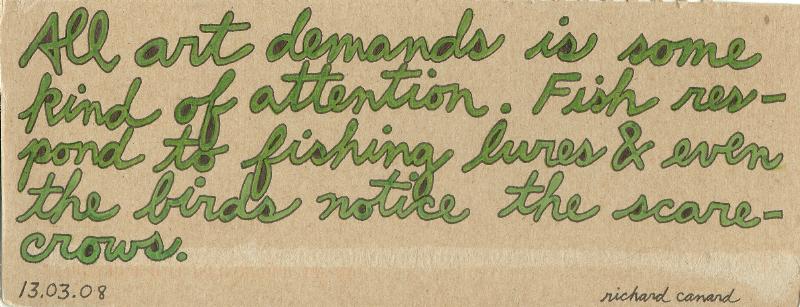 All art demands is some
kind of attention. Fish res-
pond to fishing lures & even
the birds notice the scare-
crows.
13.03.08
richard canard